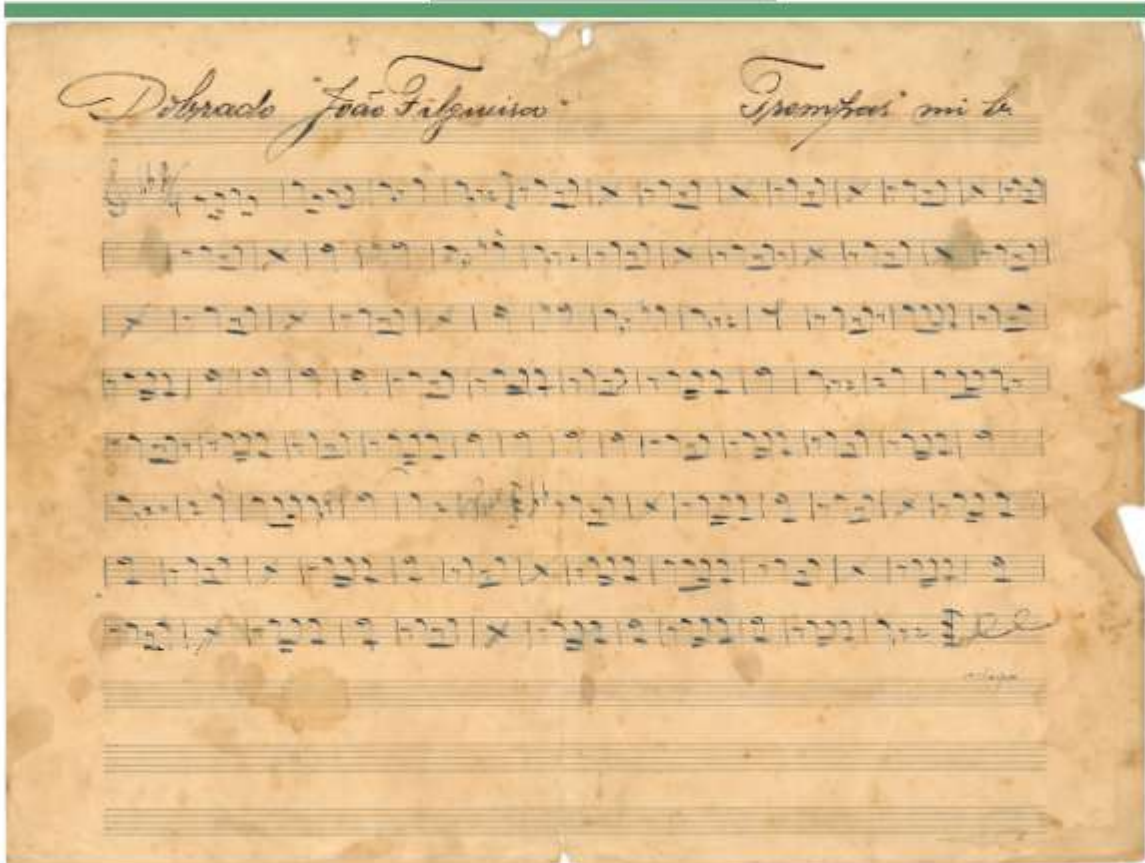 Dobrado "João Filgueira" Trompas mi b